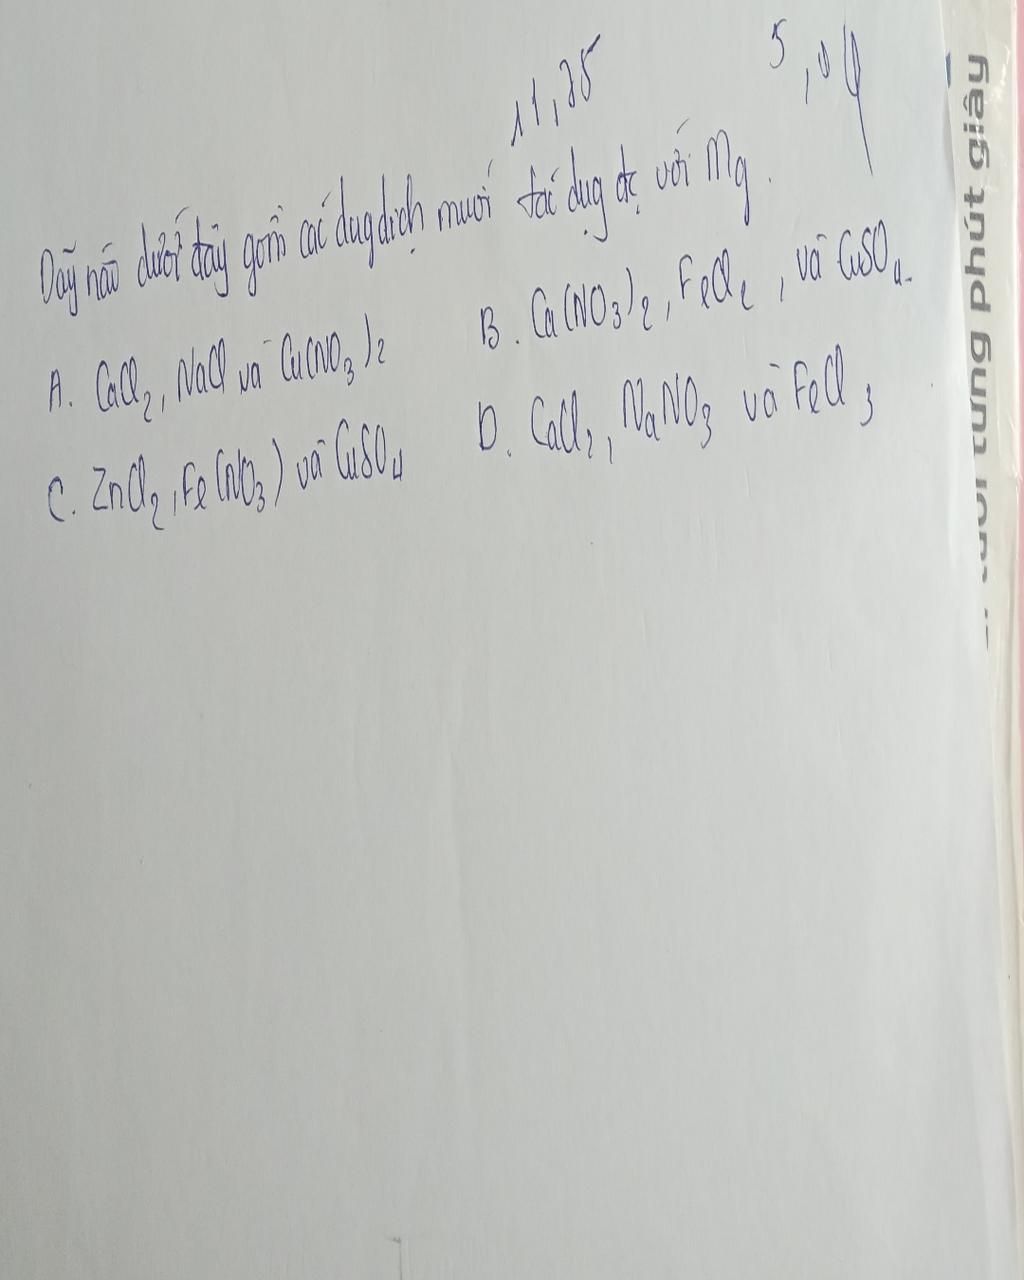 11,28 5,04
Dãy nào dưới đây gồm các dug dịch muối tác dụg đc với Mg.
A. CaCl2, NaCl và Cu(NO3)2 B. Ca(NO3)2, FeCl2, và CuSO4.
C. ZnCl2, Fe(NO3) và CuSO4 D. CaCl2, NaNO3 và FeCl3
từng phút giây